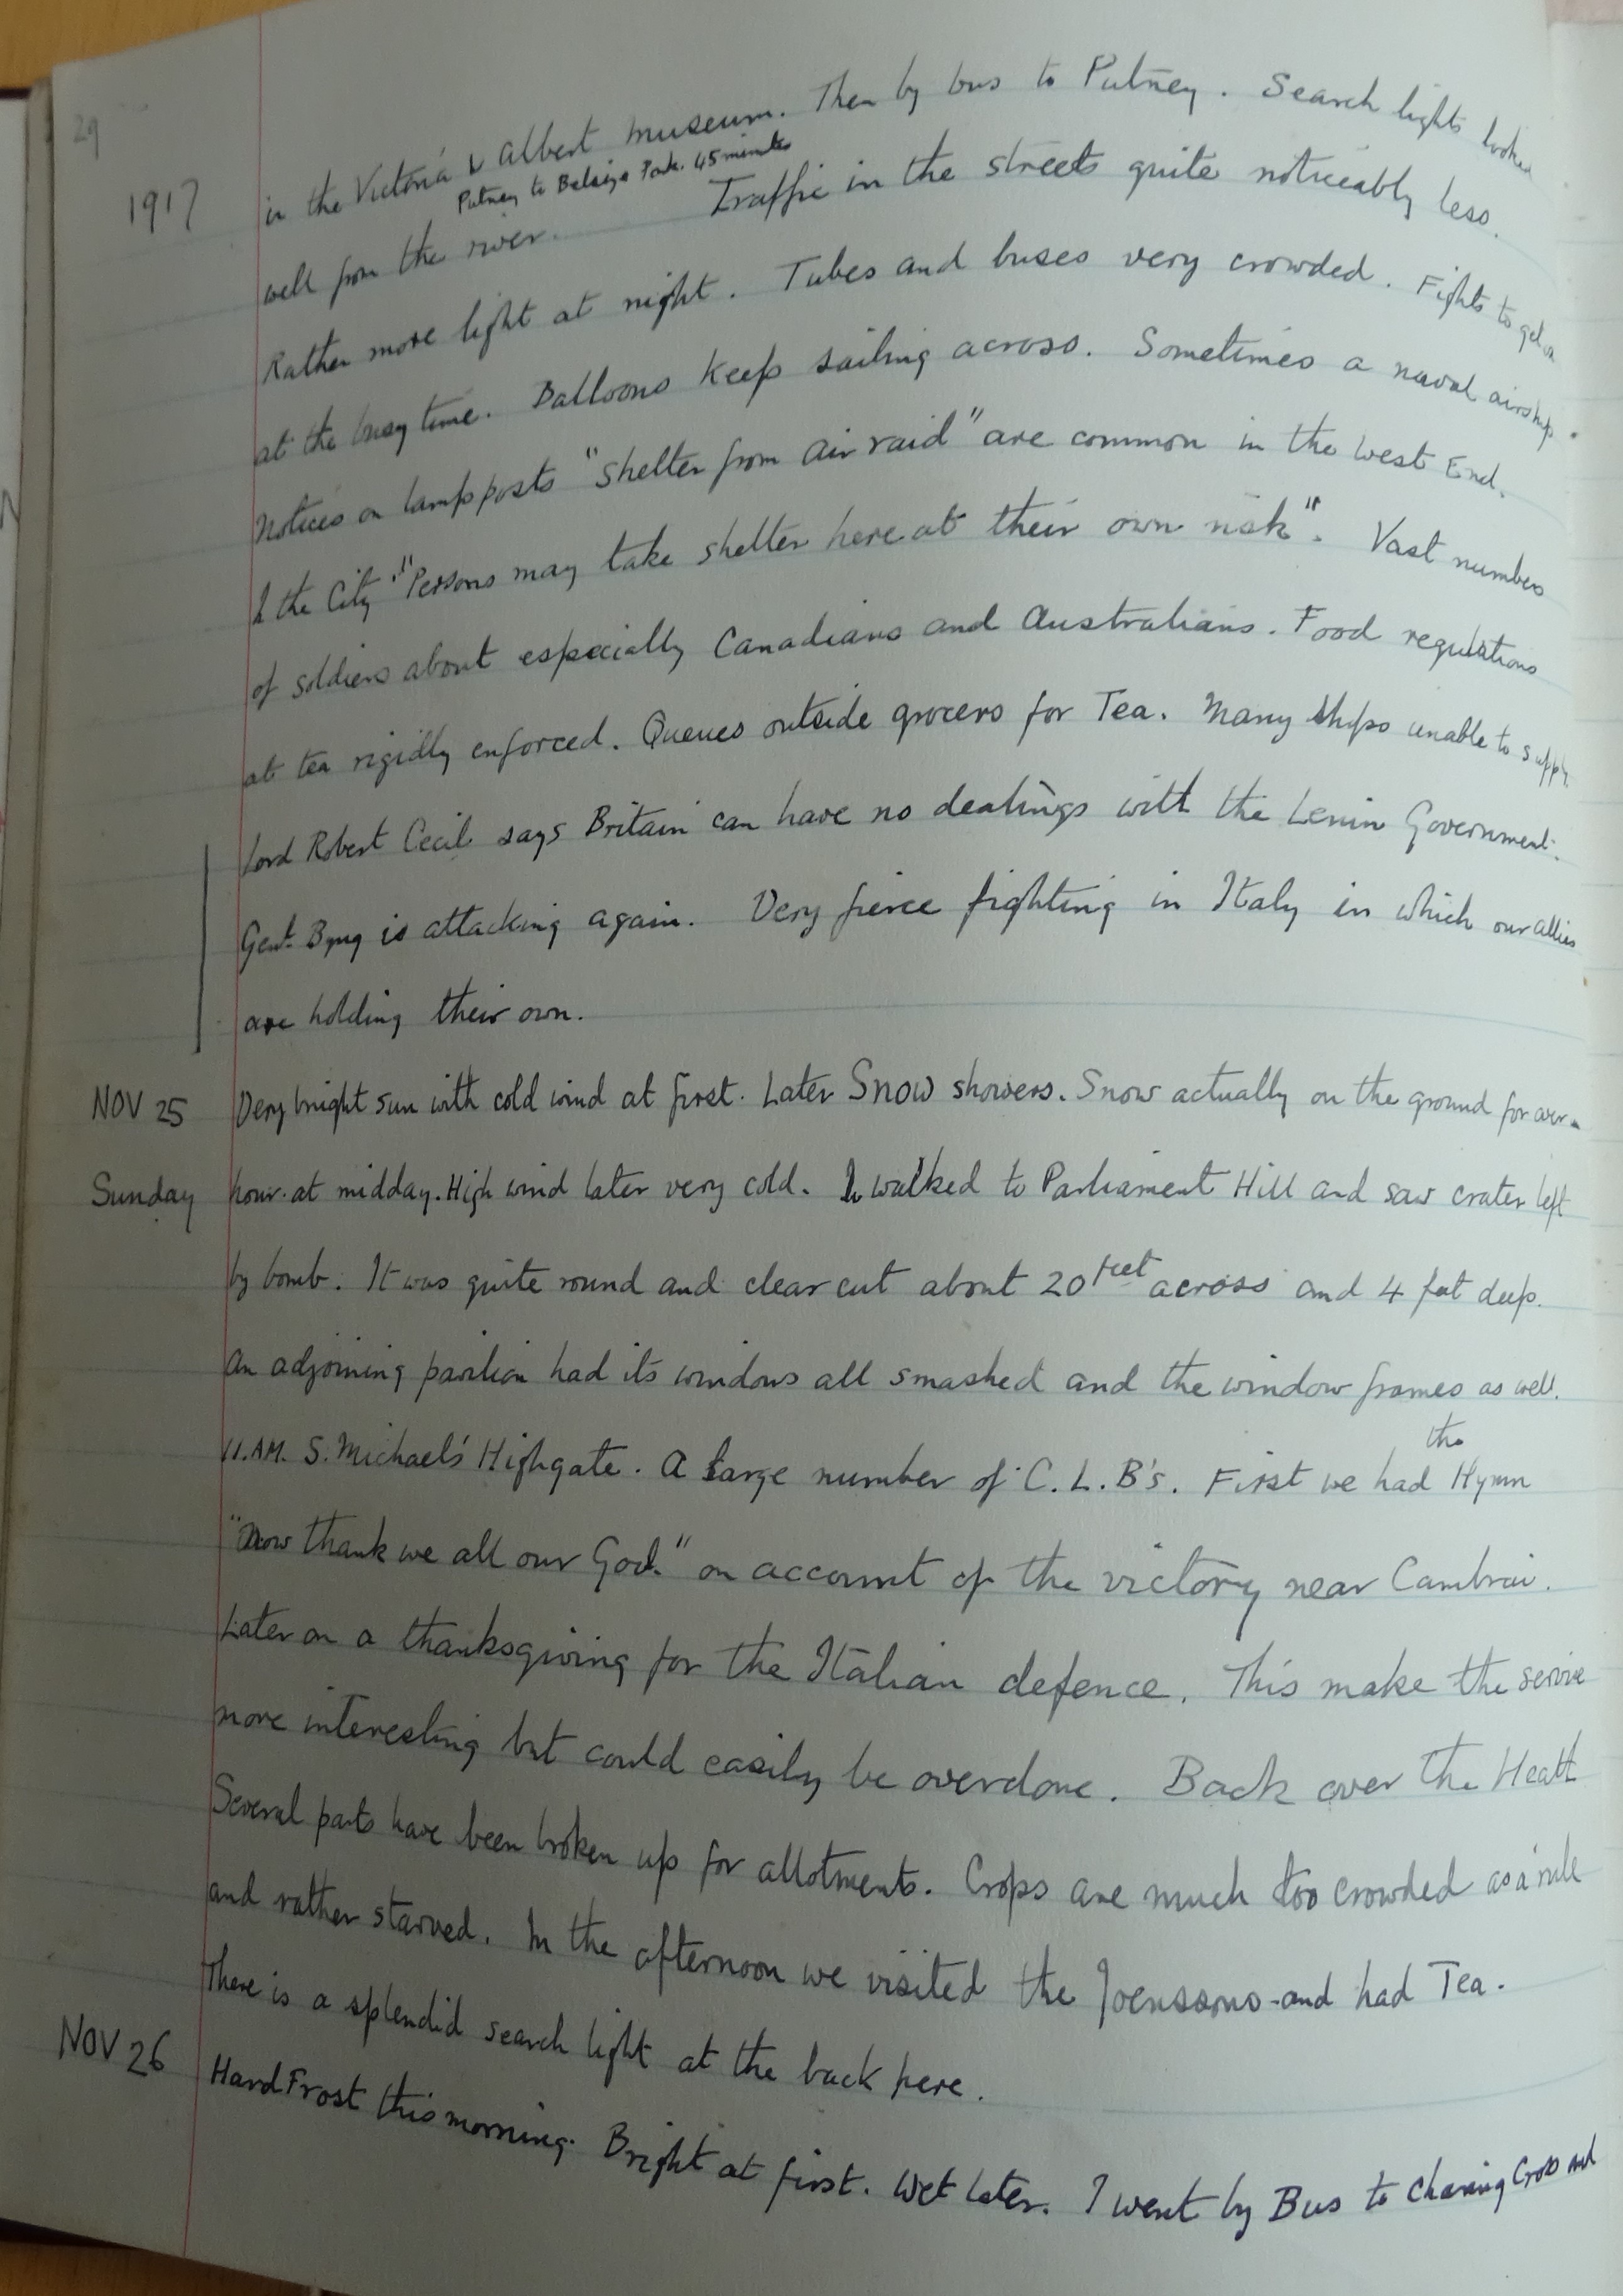 29
1917
in the Victoria & Albert Museum. Then by bus to Putney. Search lights looked
Putney to Belsize Park. 45 minutes
well from the river. Traffic in the streets quite noticeably less.
Rather more light at night. Tubes and buses very crowded. Fights to get on
at the busy time. Balloons keep sailing across. Sometimes a naval airship.
Notices on lampposts "Shelter from air raid" are common in the West End.
In the City "Persons may take shelter here at their own risk". Vast numbers
of soldiers about especially Canadians and Australians. Food regulations
at tea rigidly enforced. Queues outside grocers for Tea. Many shops unable to supply.
Lord Robert Cecil says Britain can have no dealings with the Lenin Government.
Genl. Byng is attacking again. Very fierce fighting in Italy in which our allies
are holding their own.
NOV 25 Very bright sun with cold wind at first. Later Snow showers. Snow actually on the ground for over an
Sunday hour at midday. High wind later very cold. I walked to Parliament Hill and saw crater left
by bomb. It was quite round and clear cut about 20 feet across and 4 feet deep.
An adjoining pavilion had its windows all smashed and the window frames as well.
11.AM. S. Michael's Highgate. A large number of C.L.B's. First we had the Hymn
"Now thank we all our God." on account of the victory near Cambrai.
Later on a thanksgiving for the Italian defence. This make the service
more interesting but could easily be overdone. Back over the Heath
Several parts have been broken up for allotments. Crops are much too crowded as a rule
and rather starved. In the afternoon we visited the and had Tea.
There is a splendid search light at the back here.
NOV 26 Hard Frost this morning. Bright at first. Wet later. I went by Bus to Charing Cross and